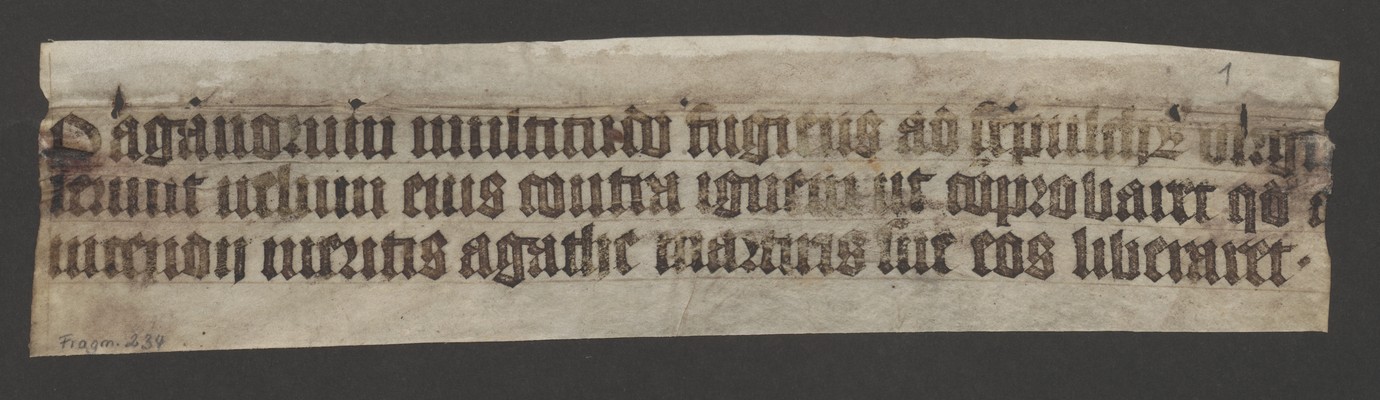 1
Paganorum multitudo fugiens ad sepulchrū virgi
lerunt uelum eius contra ignem ut cōprobaret qd
incendij meritis agathe martiris sue eos liberaret.
Fragm. 234